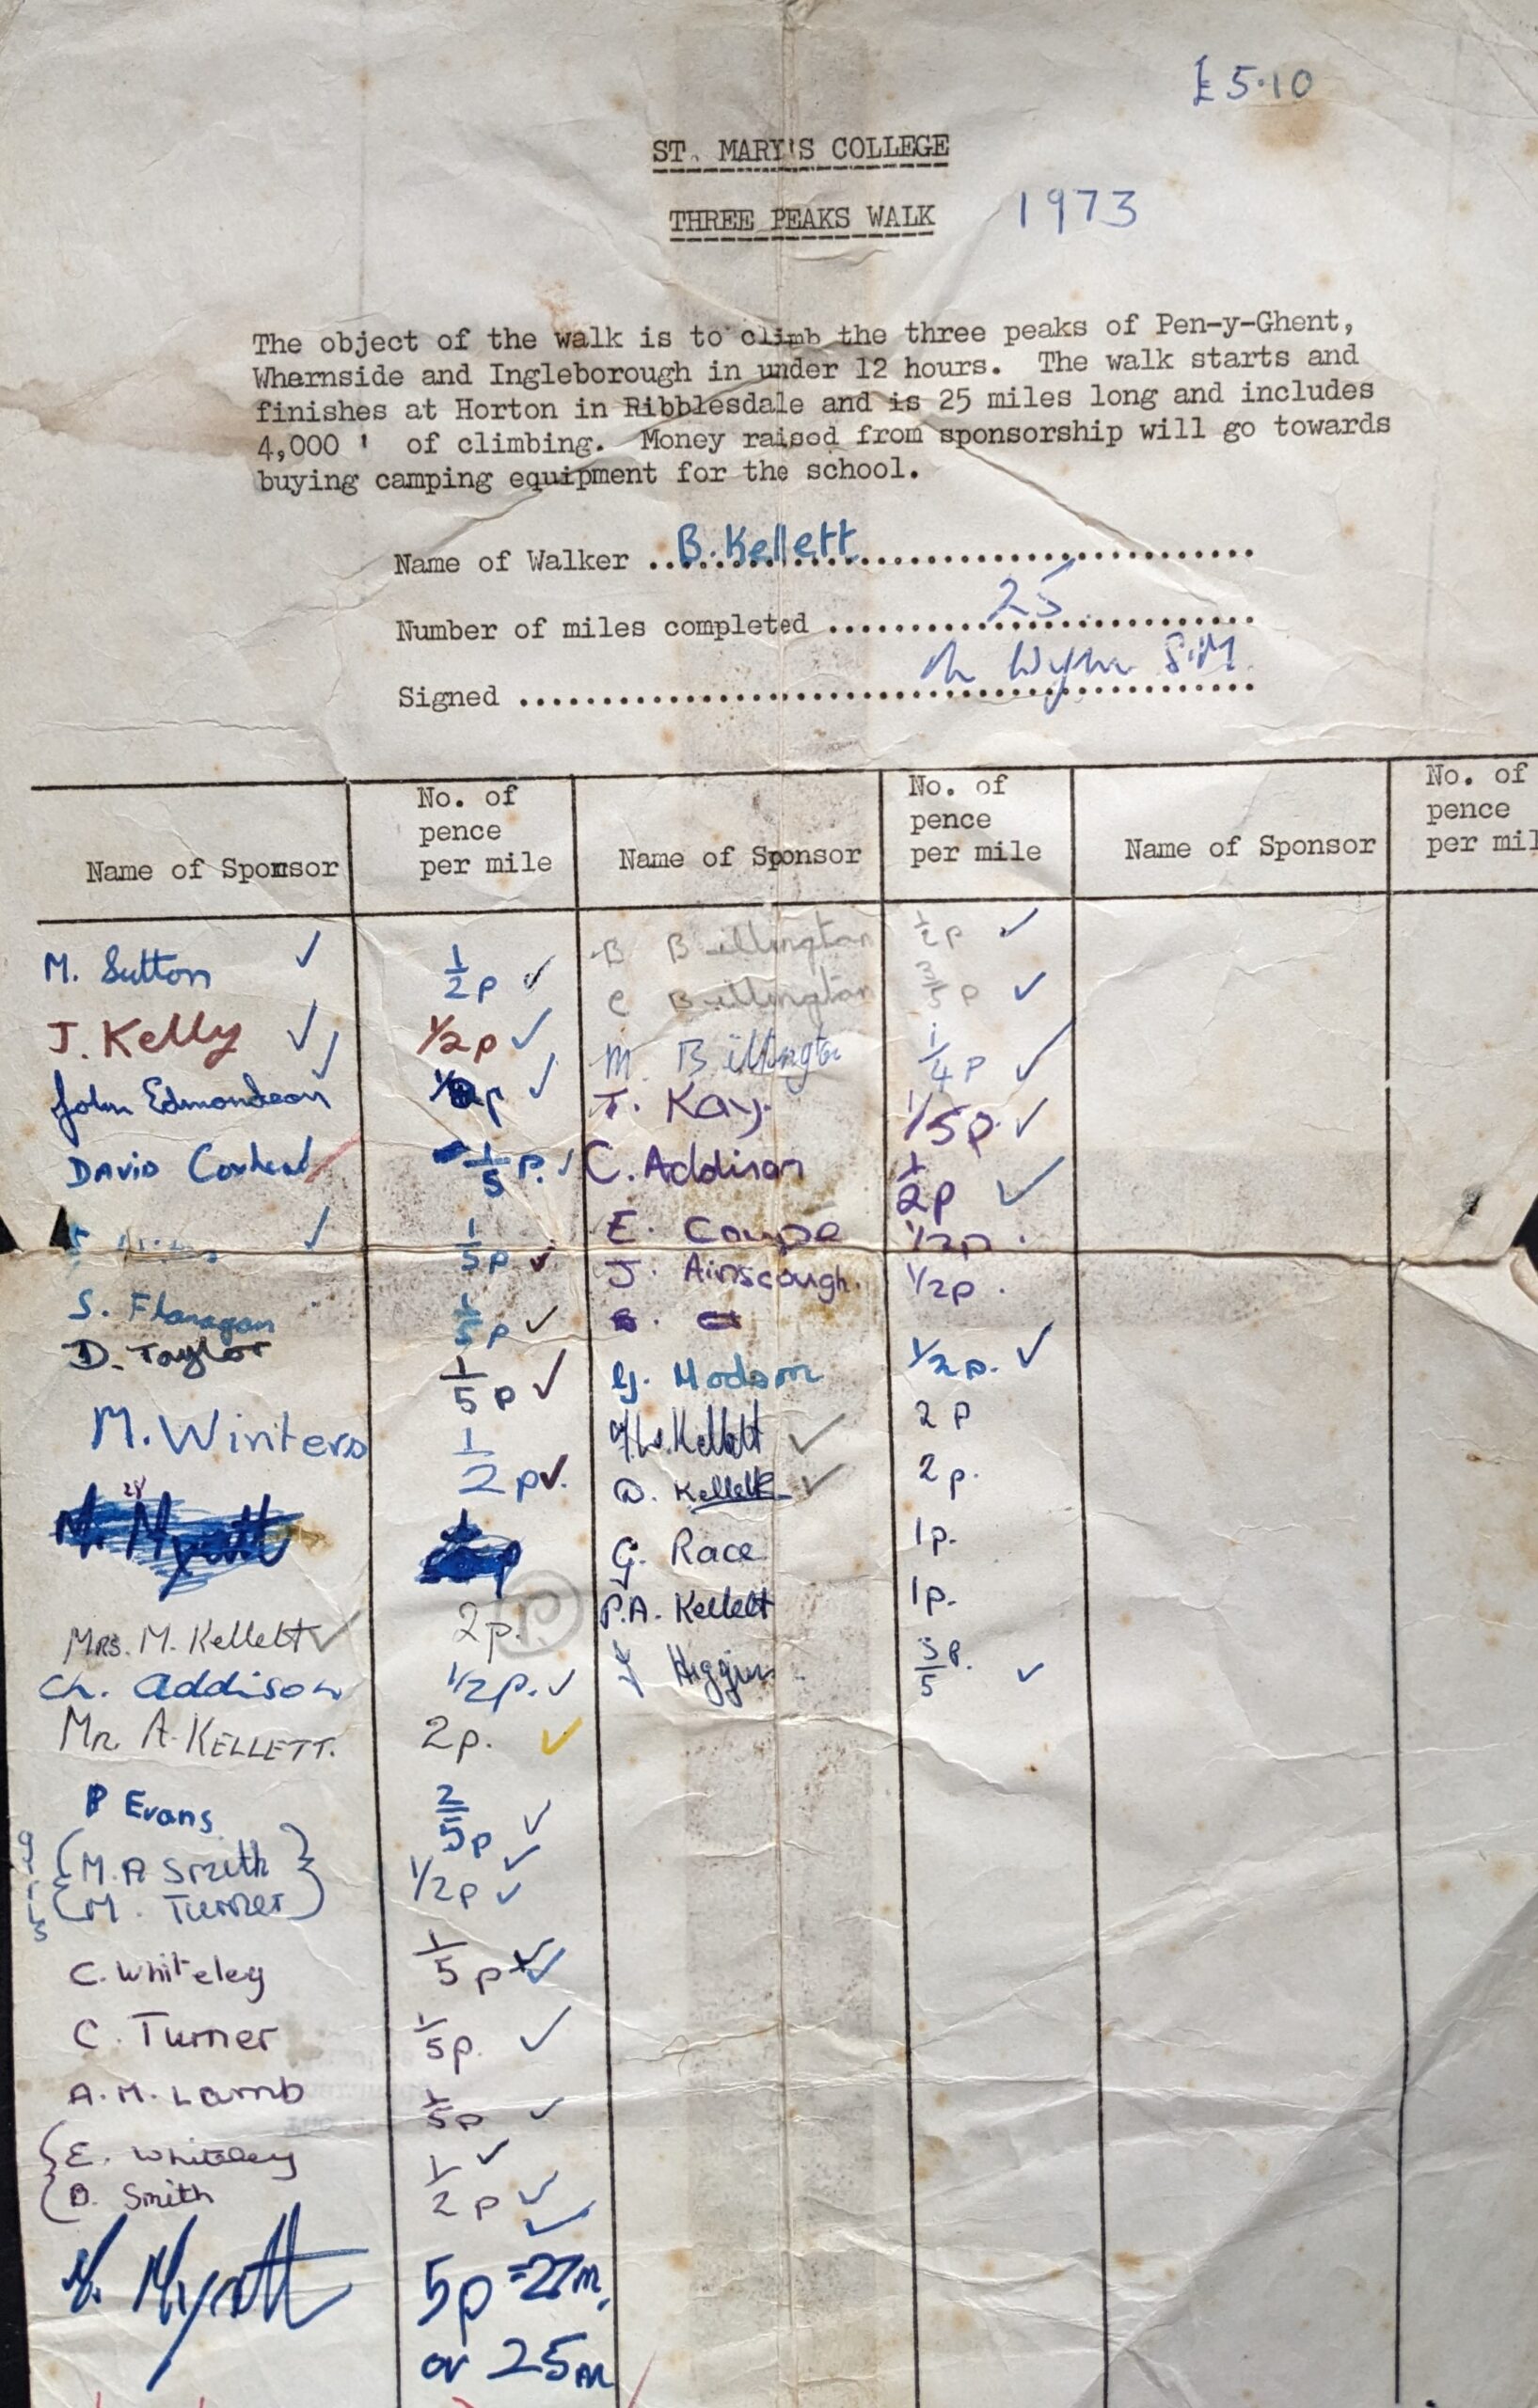 £5.10
ST. MARY'S COLLEGE
THREE PEAKS WALK 1973
The object of the walk is to climb the three peaks of Pen-y-Ghent,
Wharnside and Ingleborough in under 12 hours. The walk starts and
finishes at Horton in Ribblesdale and is 25 miles long and includes
4,000 ' of climbing. Money raised from sponsorship will go towards
buying camping equipment for the school.
Name of Walker B. Kellett
Number of miles completed 25
Signed S.M.
Name of Sponsor No. of pence per mile Name of Sponsor No. of pence per mile Name of Sponsor No. of pence per mil
M. Sutton ✓ 1/2p ✓
J. Kelly ✓ 1/2p ✓
John Edmondson ✓ ✓
DAVID 1/5 p. ✓
✓ 1/5p ✓
S. Flanagan 1/5p ✓
D. Taylor 1/5p ✓
M. Winters 1/2p ✓
M. Myatt
MRS. M. Kellett ✓ 2p. P.
Ch. Addison 1/2p. ✓
MR. A. KELLETT. 2p. ✓
P Evans 2/5p ✓
girls
M.A Smith ✓
M. Turner 1/2p ✓
C. Whiteley 1/5p ✓
C. Turner 1/5p. ✓
A.M. Lamb 1/5p ✓
E. Whiteley ✓
D. Smith 1/2p ✓
M. Myatt 5p = 27m,
or 25m
B Billington 1/2p ✓
C Billington 3/5p ✓
M. Billington 1/4p ✓
T. Kay. 1/5p ✓
C. Addison 1/2p ✓
E. Coupe 1/2p.
J. Ainscough. 1/2p.
G. Hodson 1/2p. ✓
Kellett ✓ 2p
D. Kellett ✓ 2p.
G. Race 1p.
P.A. Kellett 1p.
J Higgins 3/5p. ✓